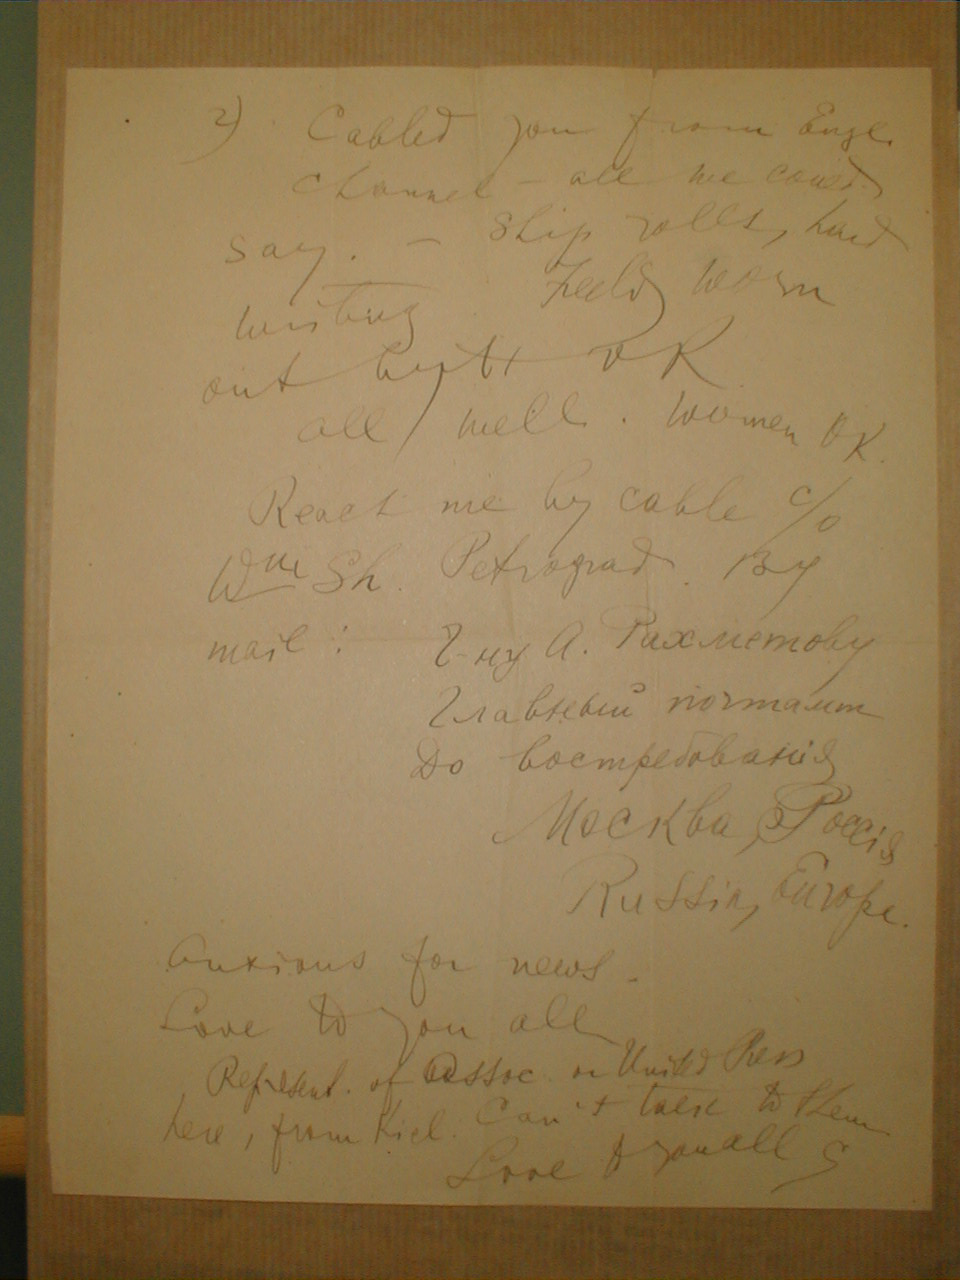 2) Cabled you from Engl.
Channel – all we could
say. – Ship rolls, hard
writing Feeling worn
out but OK
all well. Women OK.
Reach me by cable c/o
Wm Sh. Petrograd. By
mail: Г-ну А. Рахметову
Главный почтамт
До востребованія
Москва, Россія
Russia, Europe.
Anxious for news –
Love to you all
Represent. of Assoc. or United Press
here, from Kiel. Can't talk to them
Love to you all S